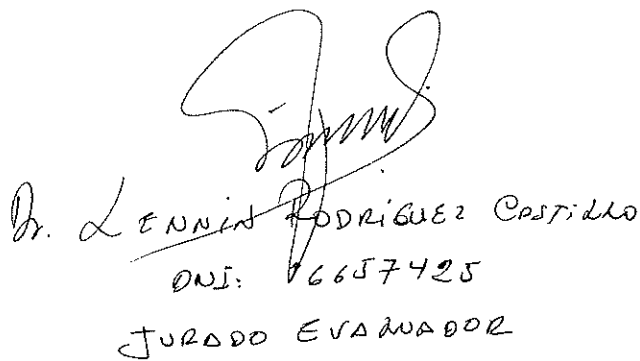 Dr. LENNIN RODRIGUEZ CASTILLO
DNI: 16657425
JURADO EVALUADOR